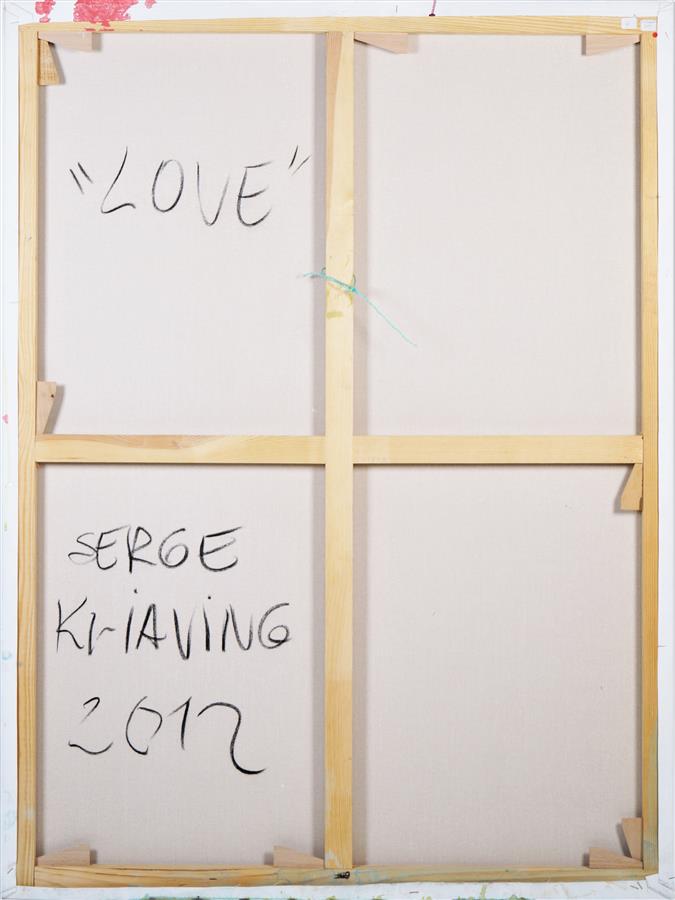 "LOVE"
SERGE
KLiAViNG
2012